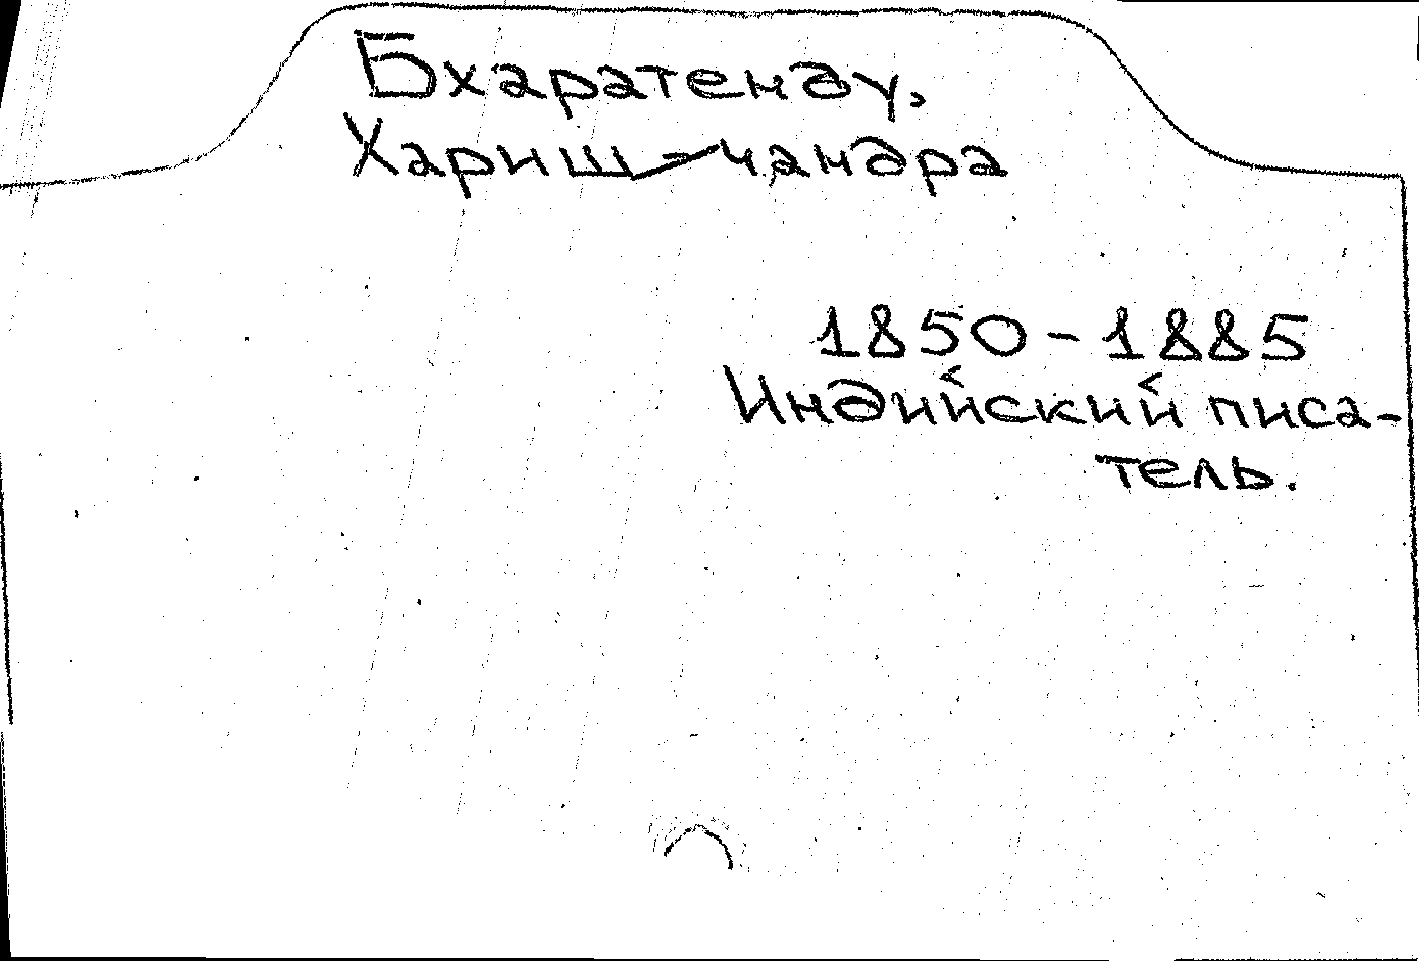 Бхаратенду,
Хариш-чандра
1850-1885
Индийский писа-
тель.